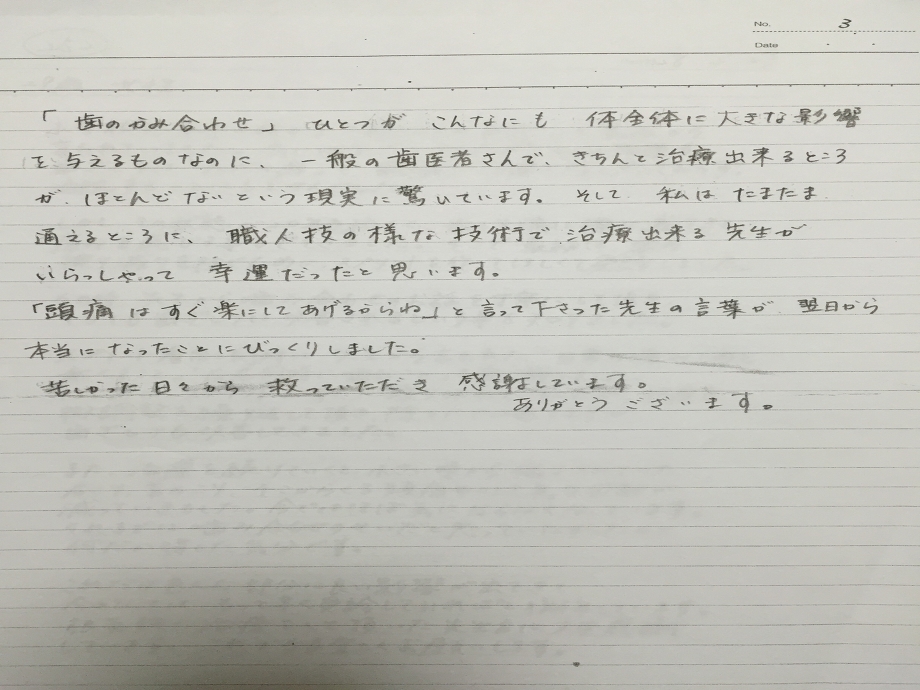 No. 3
Date . .
「歯のかみ合わせ」ひとつが こんなにも 体全体に大きな影響
を与えるものなのに、一般の歯医者さんで、きちんと治療出来るところ
が、ほとんどないという現実に驚いています。そして 私は たまたま
通えるところに、職人技の様な技術で 治療出来る 先生が
いらっしゃって 幸運だったと思います。
「頭痛はすぐ楽にしてあげるからね」と言って下さった先生の言葉が、翌日から
本当になったことにびっくりしました。
苦しかった日々から 救っていただき 感謝しています。
ありがとうございます。